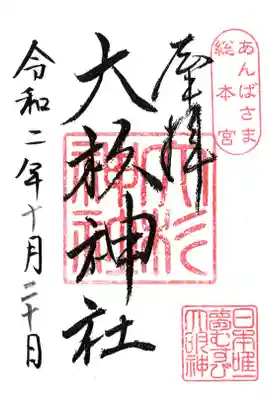 あんばさま
総本宮
奉拝
大杉神社
令和二年十月二十日
大杉
神社
日本唯一
夢むすび
大明神